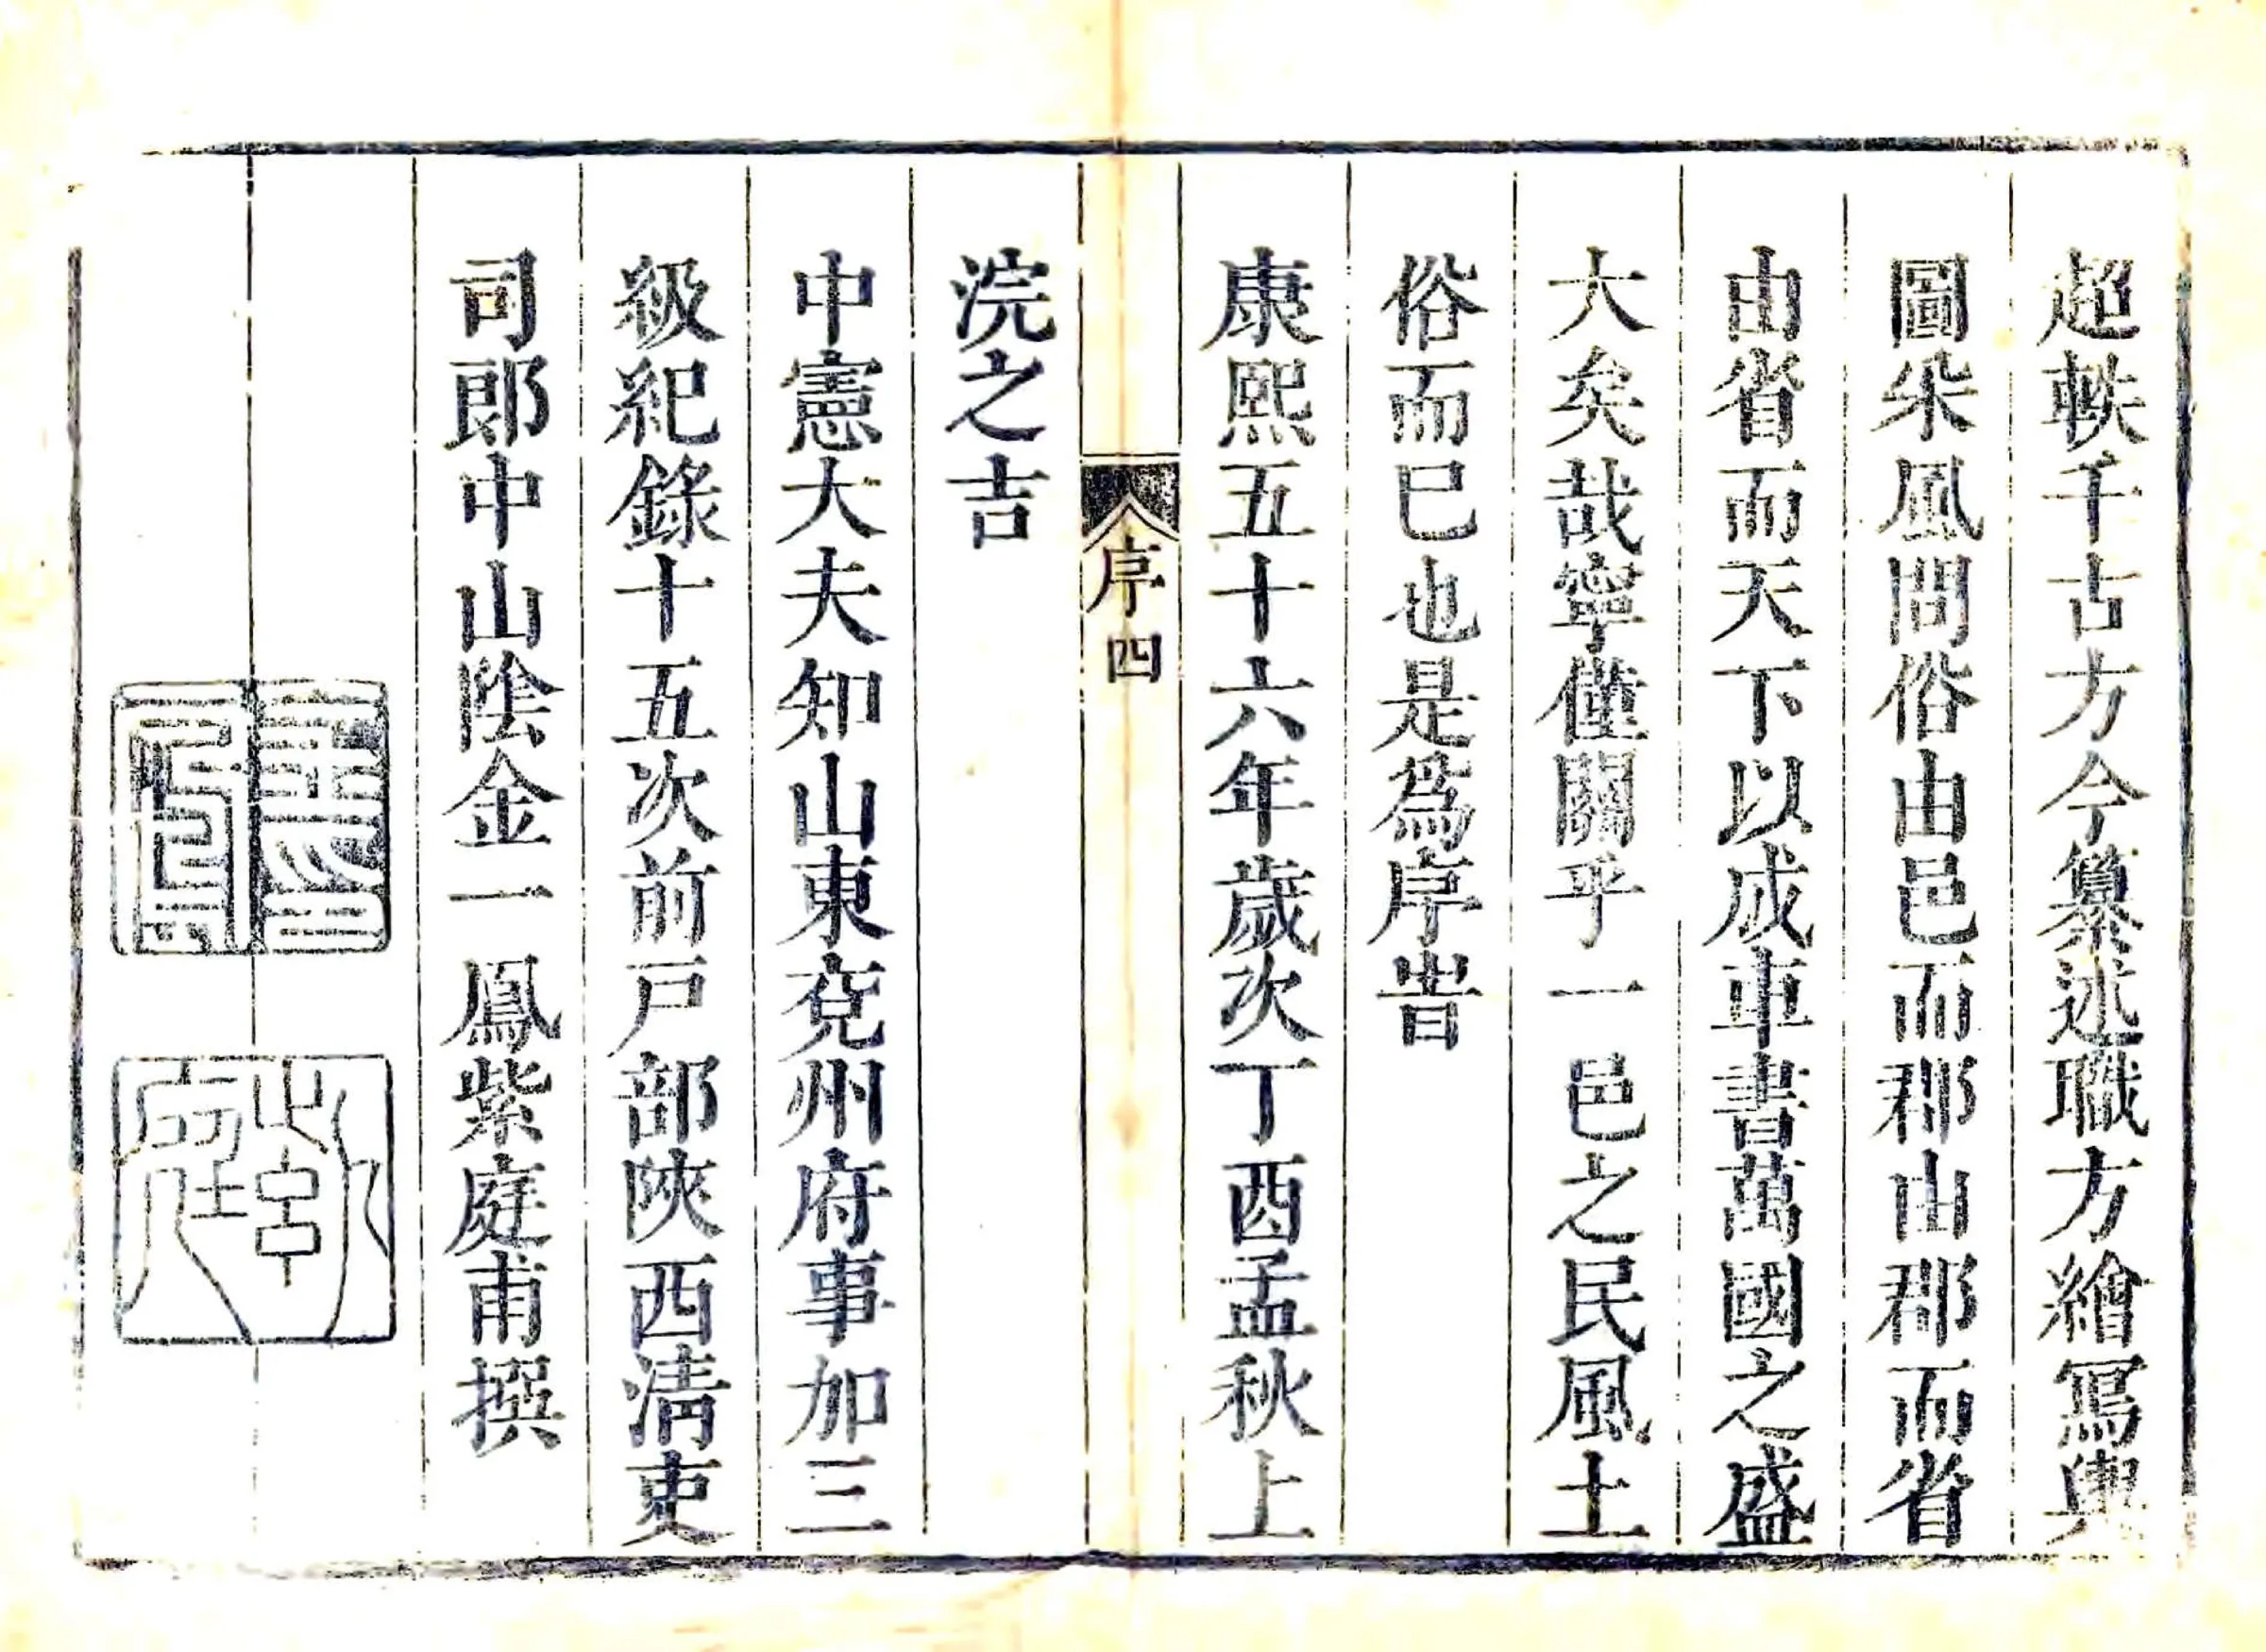 超軼千古方今纂述職方繪寫輿
圖采風問俗由邑而郡由郡而省
由省而天下以成車書萬國之盛
大矣哉寧僅關乎一邑之民風土
俗而已也是為序旹
康熙五十六年歲次丁酉孟秋上
序四
浣之吉
中憲大夫知山東兗州府事加三
級紀錄十五次前戸部陝西清吏
司郎中山陰金一鳳紫庭甫撰